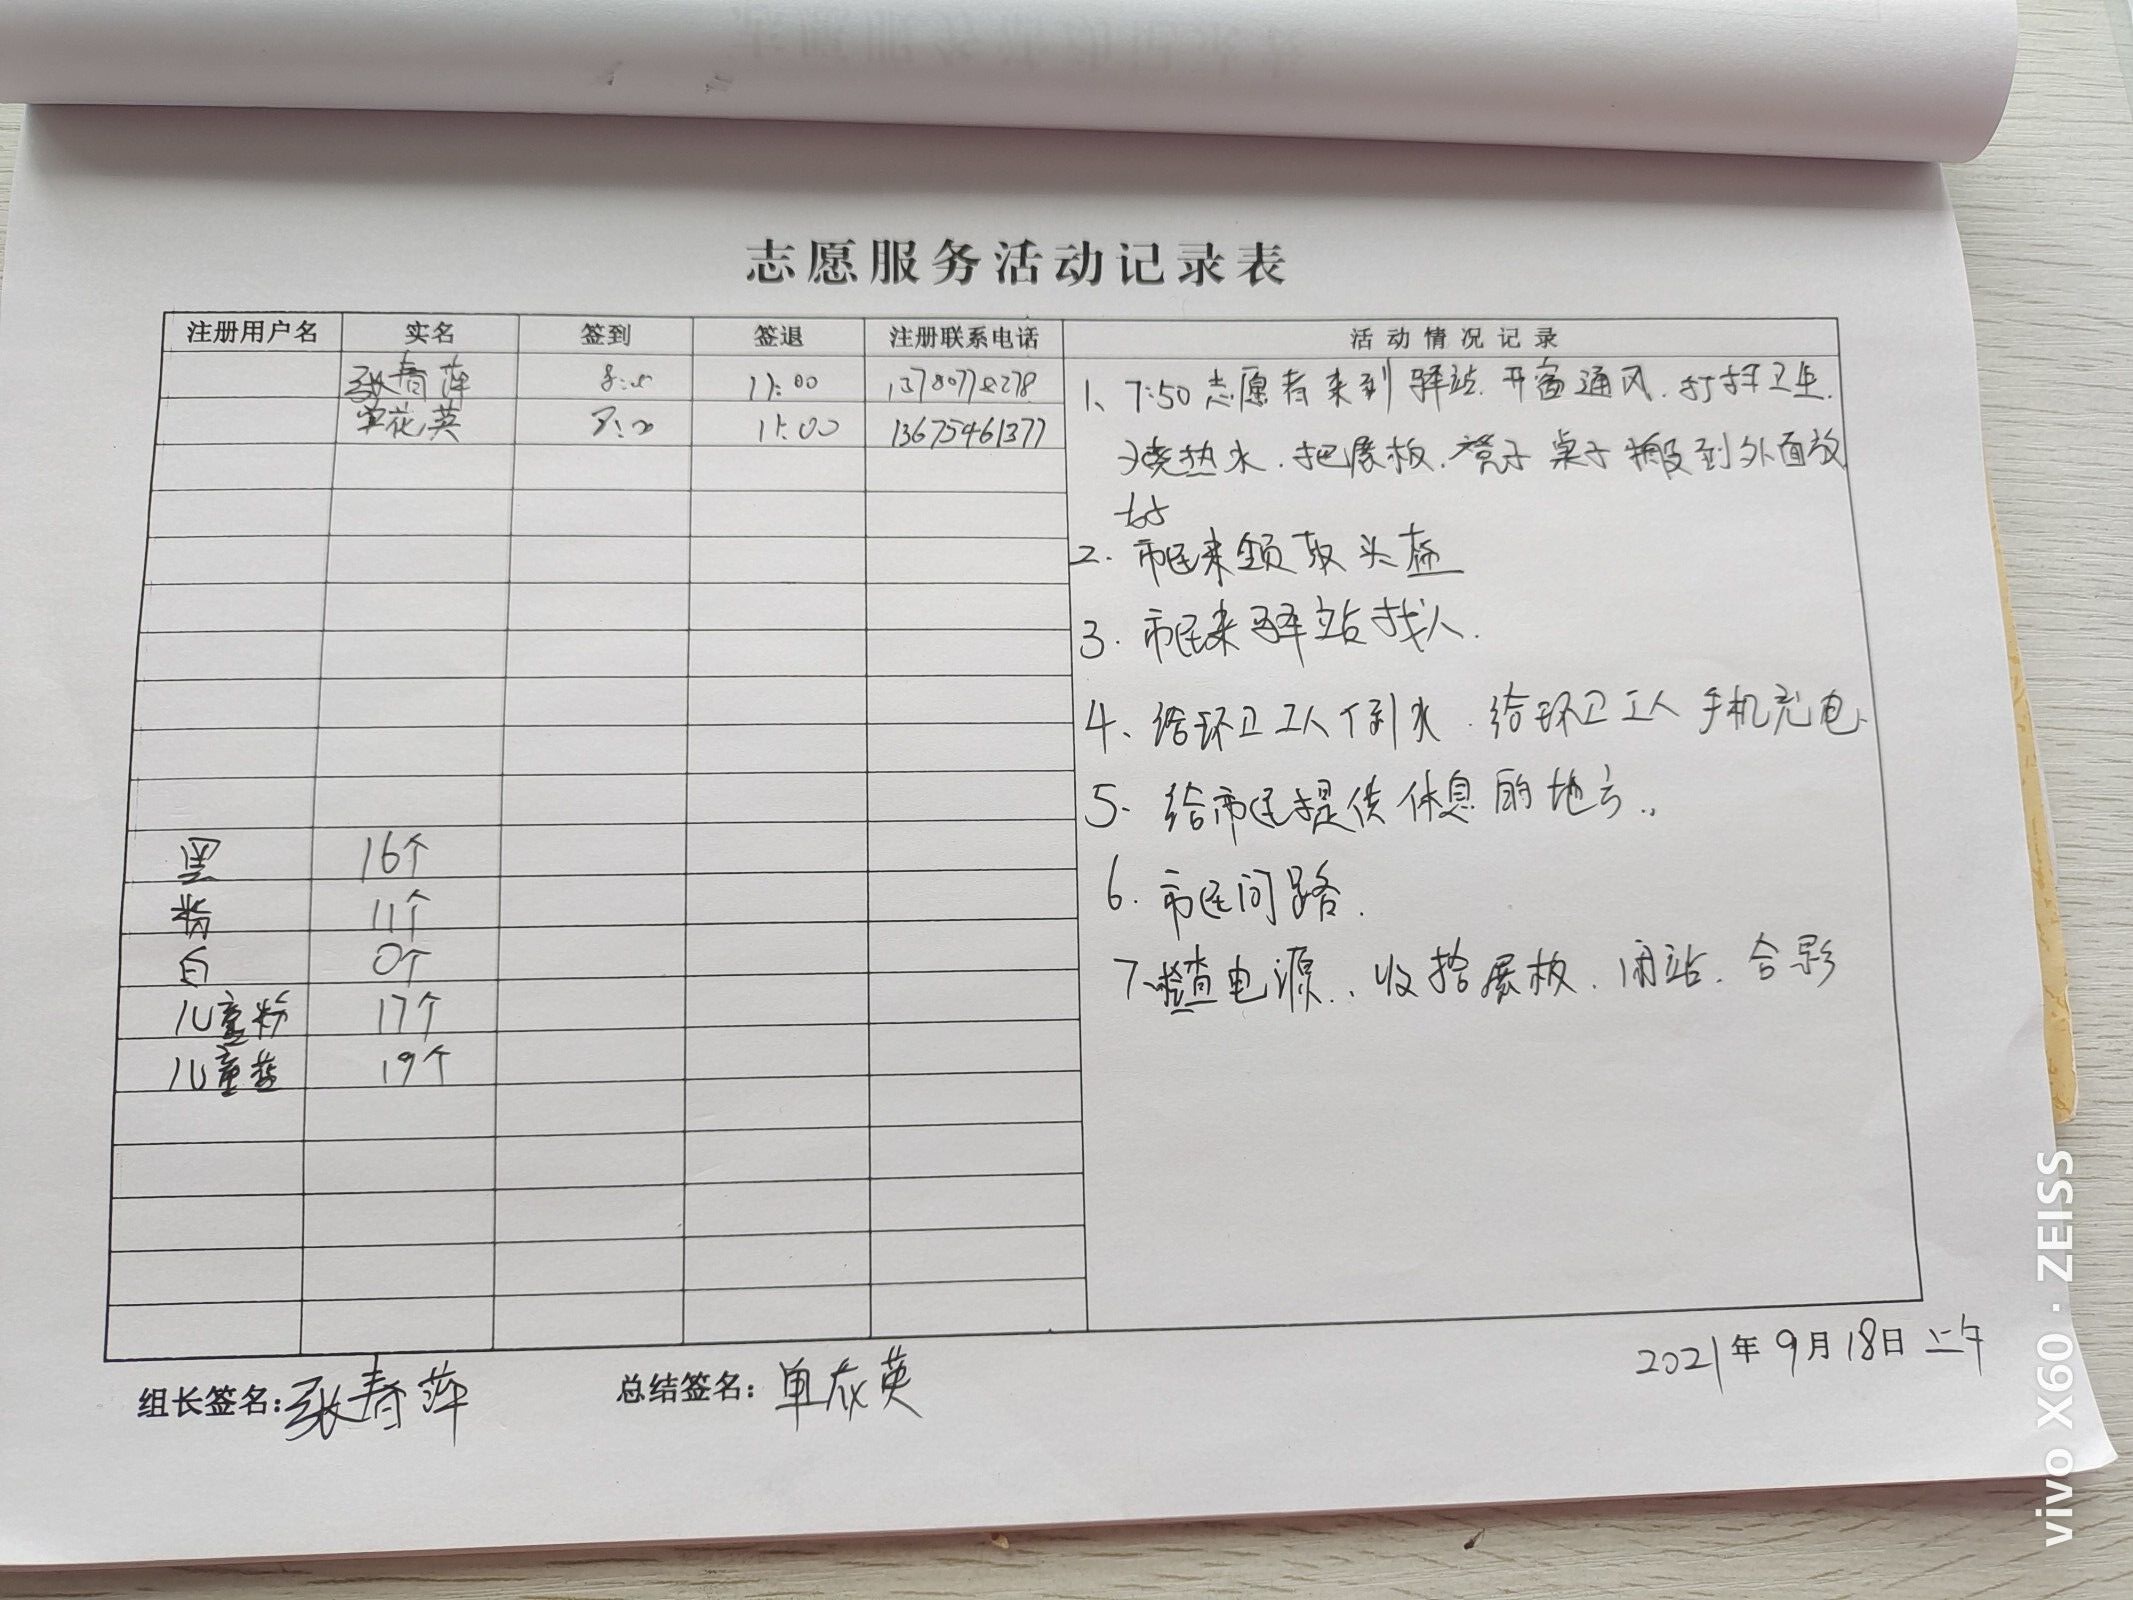 志愿服务活动记录表
注册用户名 实名 签到 签退 注册联系电话 活动情况记录
张春萍 8:00 11:00
单花英 8:00 11:00 13675461377
1、7:50志愿者来到驿站.开窗通风.打扫卫生.
烧热水.把展板.凳子桌子搬到外面放
好
2.市民来领取头盔
3.市民来驿站找人.
4、给环卫工人倒水.给环卫工人手机充电.
5.给市民提供休息的地方.
6.市民问路.
7.检查电源.收拾展板.闭站.合影
黑 16个
粉 11个
白 0个
儿童粉 17个
儿童蓝 19个
组长签名:张春萍 总结签名:单花英
2021年9月18日上午
vivo X60 · ZEISS